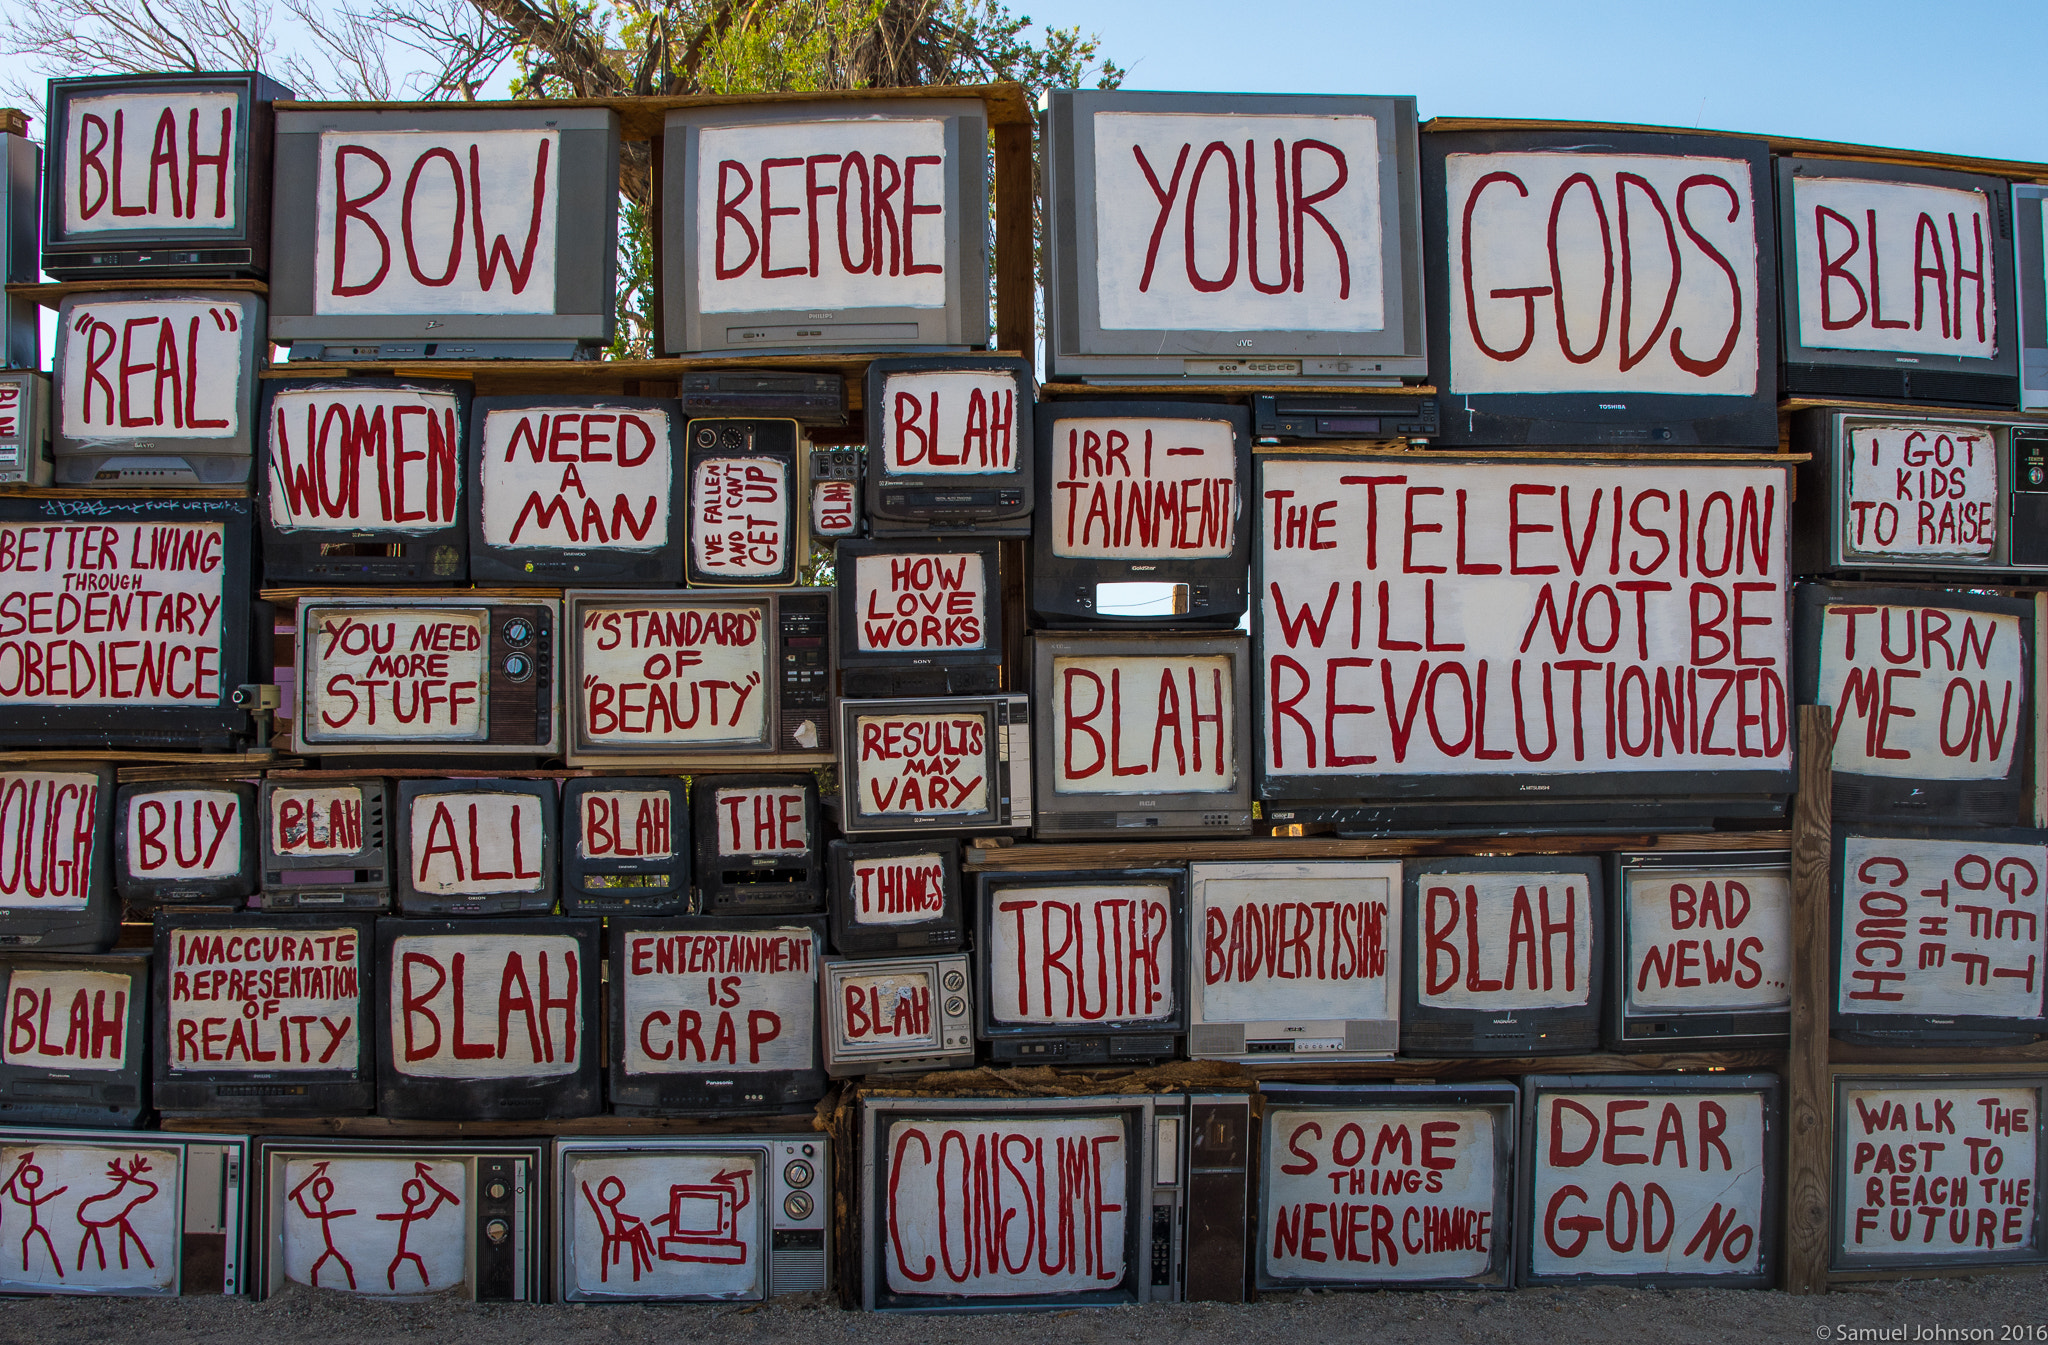 BLAH
BOW
BEFORE
YOUR
GODS
BLAH
"REAL"
WOMEN
NEED
A
MAN
I'VE FALLEN
AND I CAN'T
GET UP
BLAH
BLAH
IRRI-
TAINMENT
THE TELEVISION
WILL NOT BE
REVOLUTIONIZED
I GOT
KIDS
TO RAISE
BETTER LIVING
THROUGH
SEDENTARY
OBEDIENCE
YOU NEED
MORE
STUFF
"STANDARD"
OF
"BEAUTY"
HOW
LOVE
WORKS
RESULTS
MAY
VARY
BLAH
TURN
ME ON
OUGH
BUY
BLAH
ALL
BLAH
THE
THINGS
TRUTH?
BADVERTISING
BLAH
BAD
NEWS...
GET
OFF
THE
COUCH
BLAH
INACCURATE
REPRESENTATION
OF
REALITY
BLAH
ENTERTAINMENT
IS
CRAP
BLAH
CONSUME
SOME
THINGS
NEVER CHANGE
DEAR
GOD NO
WALK THE
PAST TO
REACH THE
FUTURE
PHILIPS
JVC
TOSHIBA
MAGNAVOX
SANYO
DAEWOO
GoldStar
SONY
RCA
MITSUBISHI
ORION
Panasonic
MAGNAVOX
Panasonic
© Samuel Johnson 2016